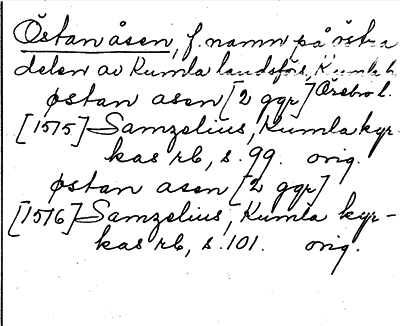 Östan åsen, f. namn på östra
delen av Kumla landsförs, Kumla h.
Örebro l.
østan asen [2 ggr]
[1575] Samzelius, Kumla kyr-
kas rb, s. 99. orig.
østan asen [2 ggr]
[1576] Samzelius, Kumla kyr-
kas rb, s. 101. orig.